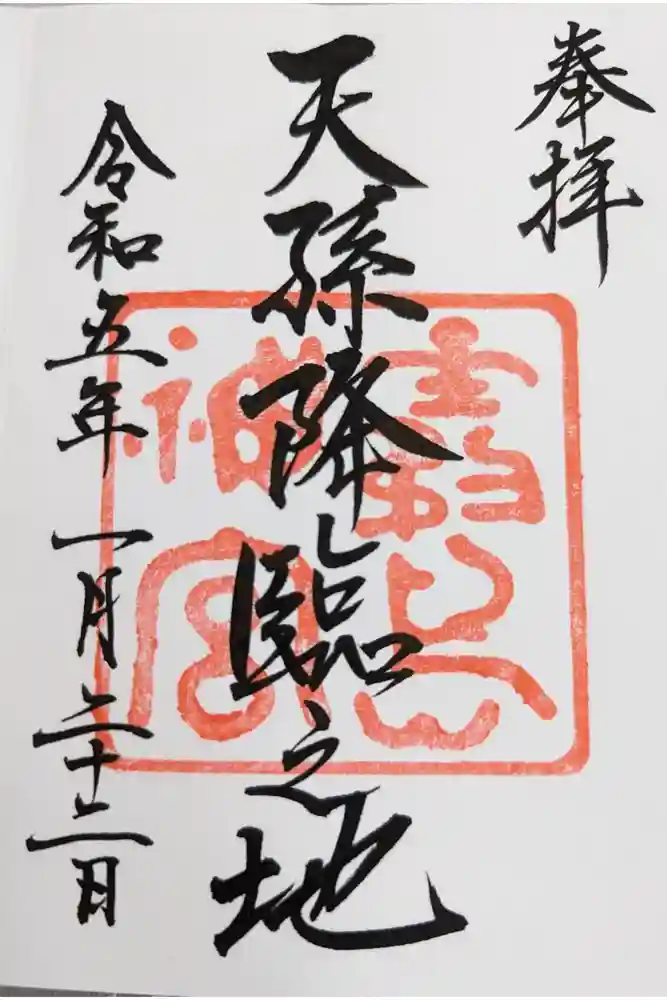 奉拝
天孫降臨之地
令和五年一月二十二日
霧島
神宮